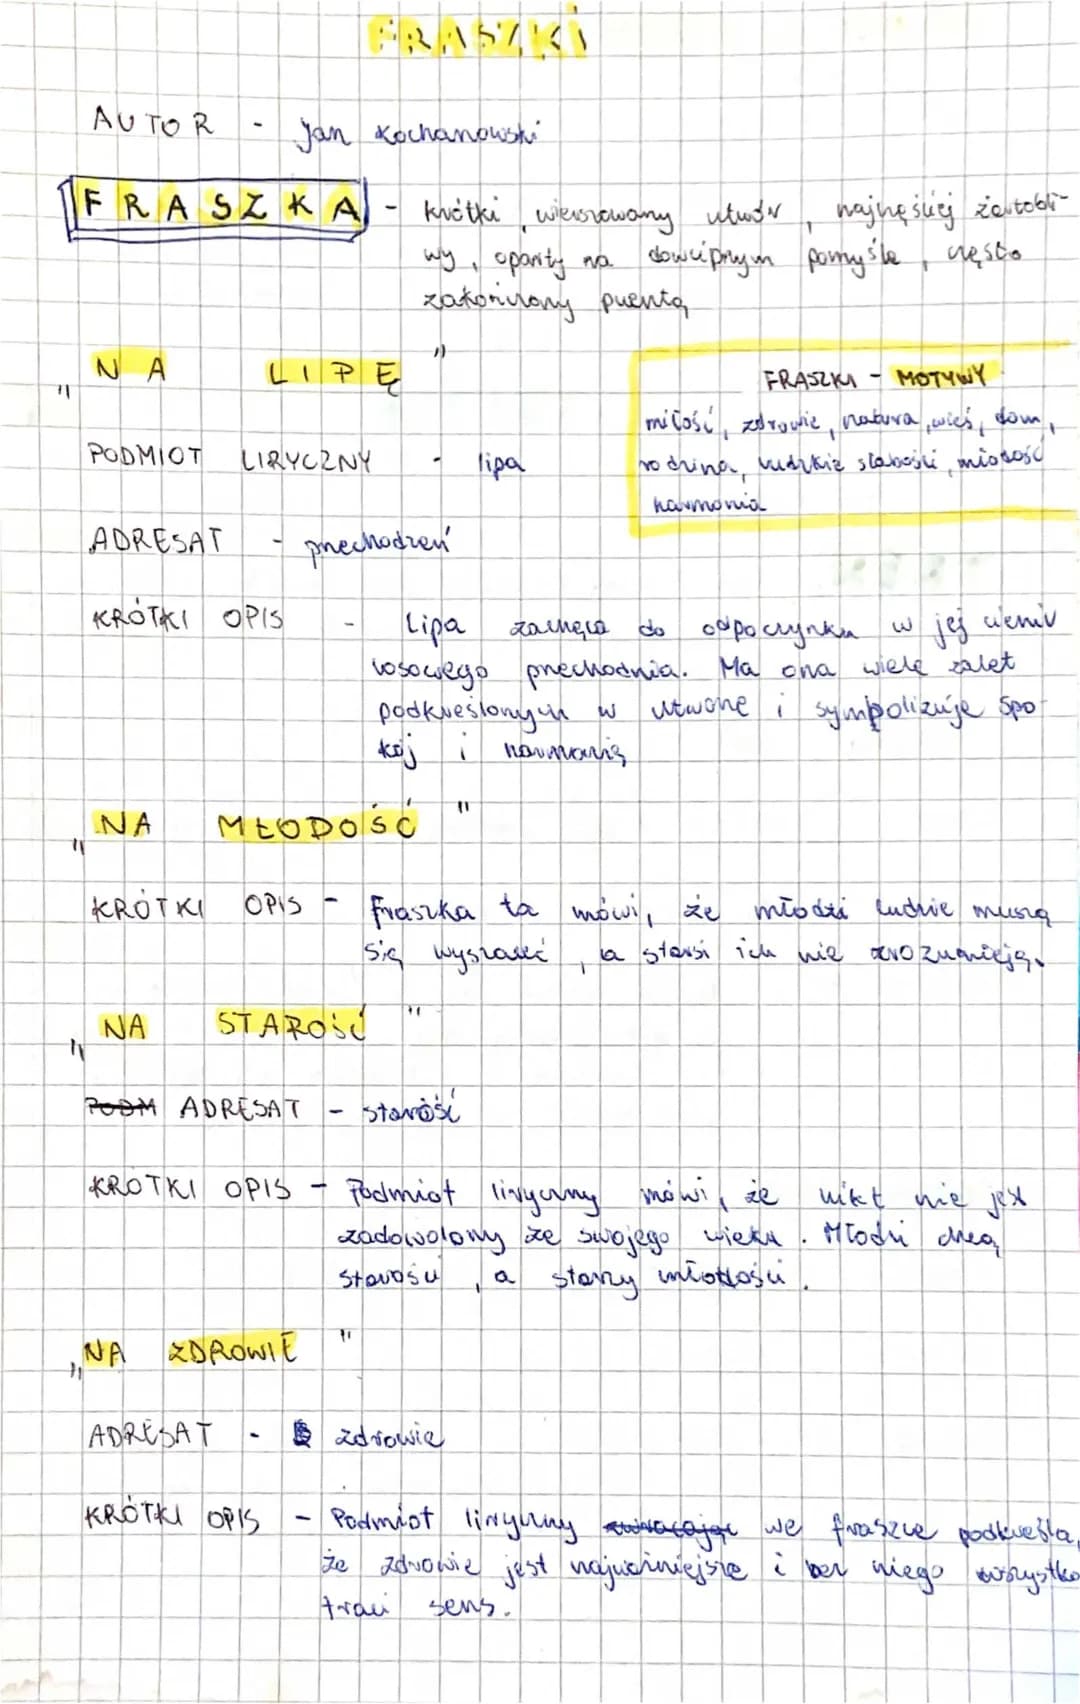 FRASZKI
AUTOR - Jan Kochanowski
FRASZKA - krótki, wierszowany utwór, najczęściej żartobli-
wy, oparty na dowcipnym pomyśle, często
zakończony puentą
„NA LIPĘ"
FRASZKI - MOTYWY
miłość, zdrowie, natura, wieś, dom,
rodzina, ludzkie słabości, młodość
harmonia
PODMIOT LIRYCZNY - lipa
ADRESAT - przechodzeń
KRÓTKI OPIS - Lipa zachęca do odpoczynku w jej cieniu
losowego przechodnia. Ma ona wiele zalet
podkreślonych w utworze i symbolizuje spo-
kój i harmonię
„NA MŁODOŚĆ"
KRÓTKI OPIS - Fraszka ta mówi, że młodzi ludzie muszą
się wyszaleć, a starsi ich nie zrozumieją.
„NA STAROŚĆ"
PODM ADRESAT - starość
KRÓTKI OPIS - Podmiot liryczny mówi, że nikt nie jest
zadowolony ze swojego wieku. Młodzi chcą
starości, a starzy młodości.
„NA ZDROWIE"
ADRESAT - zdrowie
KRÓTKI OPIS - Podmiot liryczny we fraszce podkreśla,
że zdrowie jest najważniejsze i bez niego wszystko
traci sens.